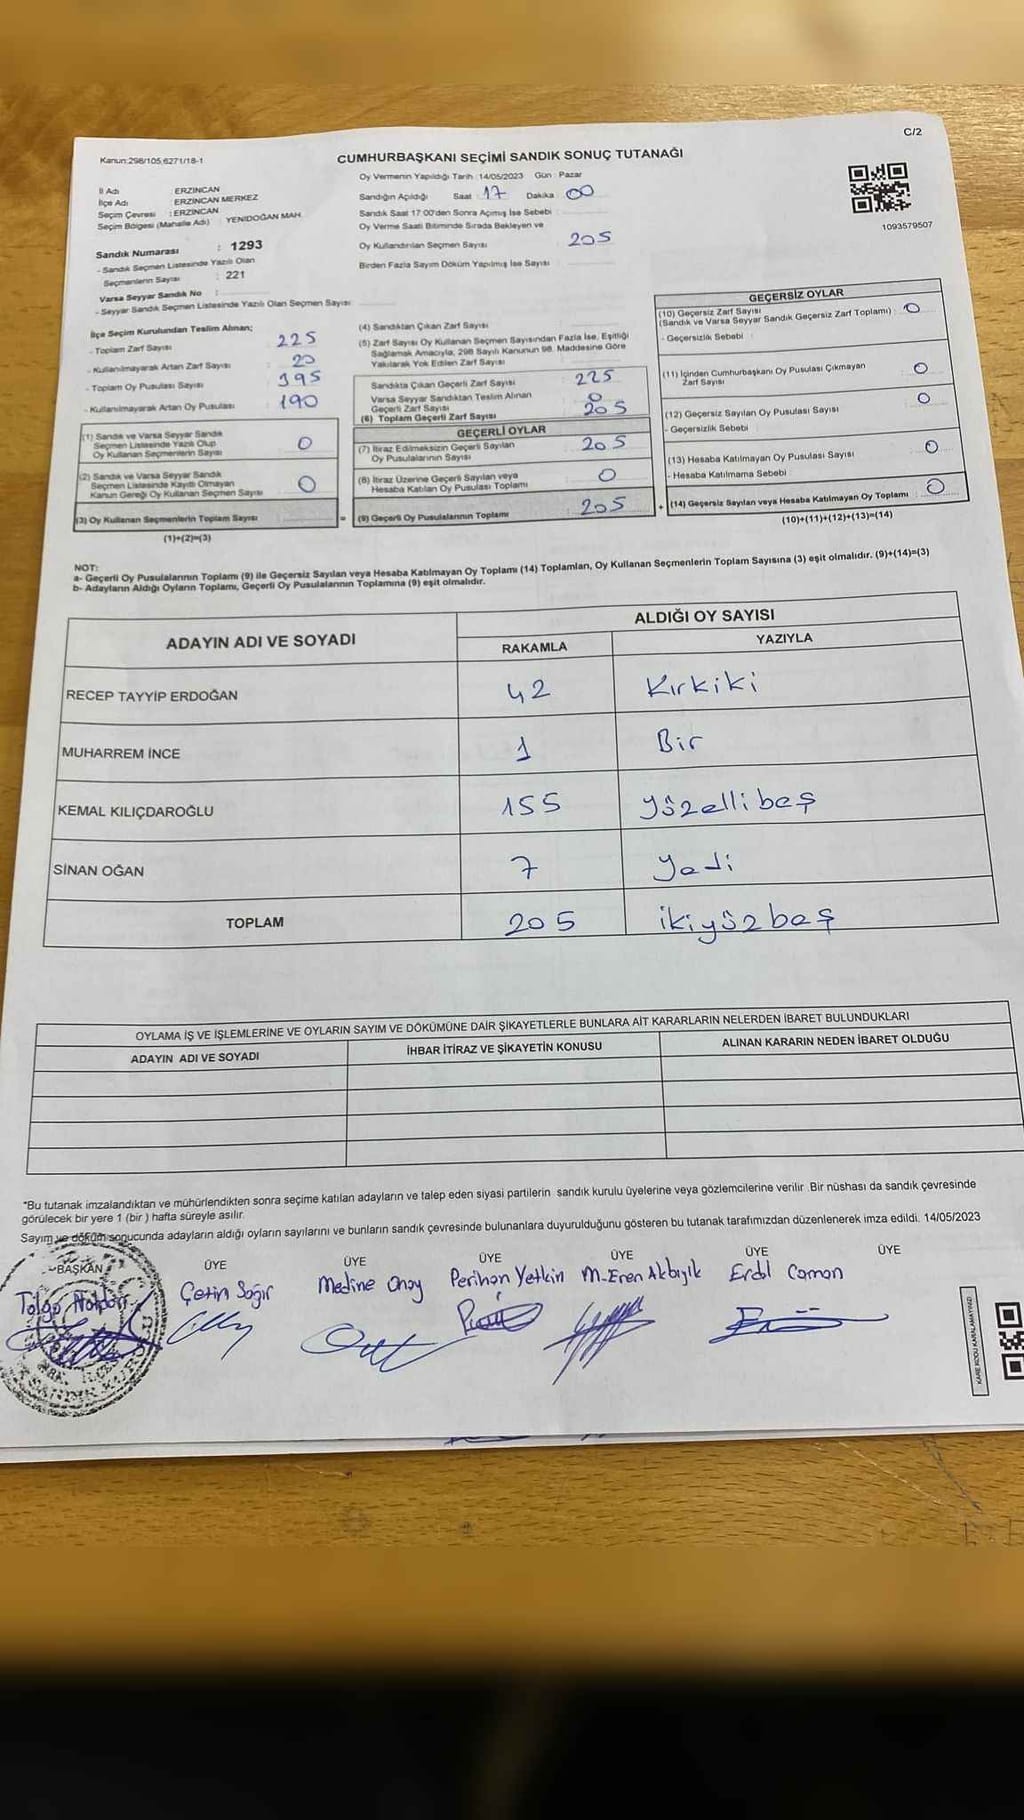 C/2
Kanun:298/105,6271/18-1
CUMHURBAŞKANI SEÇİMİ SANDIK SONUÇ TUTANAĞI
Oy Vermenin Yapıldığı Tarih : 14/05/2023 Gün : Pazar
İl Adı : ERZİNCAN
İlçe Adı : ERZİNCAN MERKEZ
Seçim Çevresi : ERZİNCAN
Seçim Bölgesi (Mahalle Adı) : YENİDOĞAN MAH.
Sandığın Açıldığı Saat : 17 Dakika : 00
Sandık Saat 17:00'den Sonra Açımış İse Sebebi :
Oy Verme Saati Bitiminde Sırada Bekleyen ve
Oy Kullandırılan Seçmen Sayısı : 205
Birden Fazla Sayım Döküm Yapılmış İse Sayısı :
1093579507
Sandık Numarası : 1293
- Sandık Seçmen Listesinde Yazılı Olan
Seçmenlerin Sayısı : 221
Varsa Seyyar Sandık No :
- Seyyar Sandık Seçmen Listesinde Yazılı Olan Seçmen Sayısı :
İlçe Seçim Kurulundan Teslim Alınan;
- Toplam Zarf Sayısı : 225
- Kullanılmayarak Artan Zarf Sayısı : 20
- Toplam Oy Pusulası Sayısı : 395
- Kullanılmayarak Artan Oy Pusulası : 190
(1) Sandık ve Varsa Seyyar Sandık
Seçmen Listesinde Yazılı Olup
Oy Kullanan Seçmenlerin Sayısı : 0
(2) Sandık ve Varsa Seyyar Sandık
Seçmen Listesinde Kayıtlı Olmayan
Kanun Gereği Oy Kullanan Seçmen Sayısı : 0
(3) Oy Kullanan Seçmenlerin Toplam Sayısı :
(1)+(2)=(3)
(4) Sandıktan Çıkan Zarf Sayısı :
(5) Zarf Sayısı Oy Kullanan Seçmen Sayısından Fazla İse, Eşitliği
Sağlamak Amacıyla, 298 Sayılı Kanunun 98. Maddesine Göre
Yakılarak Yok Edilen Zarf Sayısı :
Sandıkta Çıkan Geçerli Zarf Sayısı : 225
Varsa Seyyar Sandıktan Teslim Alınan
Geçerli Zarf Sayısı : 0
(6) Toplam Geçerli Zarf Sayısı : 205
GEÇERLİ OYLAR
(7) İtiraz Edilmeksizin Geçerli Sayılan
Oy Pusulalarının Sayısı : 205
(8) İtiraz Üzerine Geçerli Sayılan veya
Hesaba Katılan Oy Pusulası Toplamı : 0
= (9) Geçerli Oy Pusulalarının Toplamı : 205
GEÇERSİZ OYLAR
(10) Geçersiz Zarf Sayısı
(Sandık ve Varsa Seyyar Sandık Geçersiz Zarf Toplamı) : 0
- Geçersizlik Sebebi :
(11) İçinden Cumhurbaşkanı Oy Pusulası Çıkmayan
Zarf Sayısı : 0
(12) Geçersiz Sayılan Oy Pusulası Sayısı : 0
- Geçersizlik Sebebi :
(13) Hesaba Katılmayan Oy Pusulası Sayısı : 0
- Hesaba Katılmama Sebebi :
+ (14) Geçersiz Sayılan veya Hesaba Katılmayan Oy Toplamı : 0
(10)+(11)+(12)+(13)=(14)
NOT:
a- Geçerli Oy Pusulalarının Toplamı (9) ile Geçersiz Sayılan veya Hesaba Katılmayan Oy Toplamı (14) Toplamları, Oy Kullanan Seçmenlerin Toplam Sayısına (3) eşit olmalıdır. (9)+(14)=(3)
b- Adayların Aldığı Oyların Toplamı, Geçerli Oy Pusulalarının Toplamına (9) eşit olmalıdır.
ADAYIN ADI VE SOYADI
ALDIĞI OY SAYISI
RAKAMLA YAZIYLA
RECEP TAYYİP ERDOĞAN 42 Kırkiki
MUHARREM İNCE 1 Bir
KEMAL KILIÇDAROĞLU 155 Yüzellibeş
SİNAN OĞAN 7 Yedi
TOPLAM 205 ikiyüzbeş
OYLAMA İŞ VE İŞLEMLERİNE VE OYLARIN SAYIM VE DÖKÜMÜNE DAİR ŞİKAYETLERLE BUNLARA AİT KARARLARIN NELERDEN İBARET BULUNDUKLARI
ADAYIN ADI VE SOYADI İHBAR İTİRAZ VE ŞİKAYETİN KONUSU ALINAN KARARIN NEDEN İBARET OLDUĞU
*Bu tutanak imzalandıktan ve mühürlendikten sonra seçime katılan adayların ve talep eden siyasi partilerin sandık kurulu üyelerine veya gözlemcilerine verilir. Bir nüshası da sandık çevresinde
görülecek bir yere 1 (bir ) hafta süreyle asılır.
Sayım ve döküm sonucunda adayların aldığı oyların sayılarını ve bunların sandık çevresinde bulunanlara duyurulduğunu gösteren bu tutanak tarafımızdan düzenlenerek imza edildi. 14/05/2023
BAŞKAN ÜYE ÜYE ÜYE ÜYE ÜYE ÜYE
Tolga Çetin Sağır Medine Onay Perihan Yetkin M.Eren Akbıyık Erdal Coman
KARE KODU KARALAMAYINIZ!